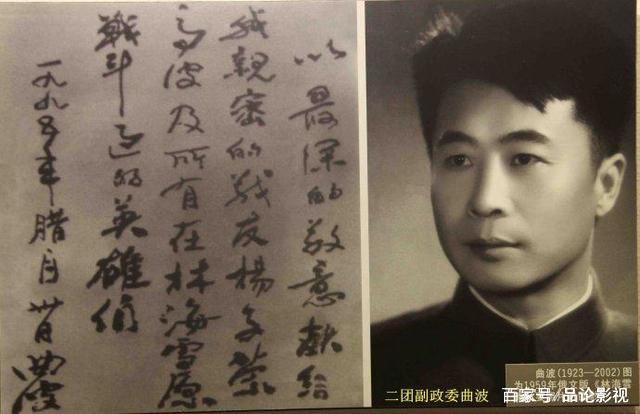 以最深的敬意献给
我親密的战友楊子荣
高波及所有在林海雪原
戰斗过的英雄们
一九九五年腊月卅日 曲波
曲波(1923—2002)图
为1959年俄文版《林海雪
二团副政委曲波
百家号/品论影视